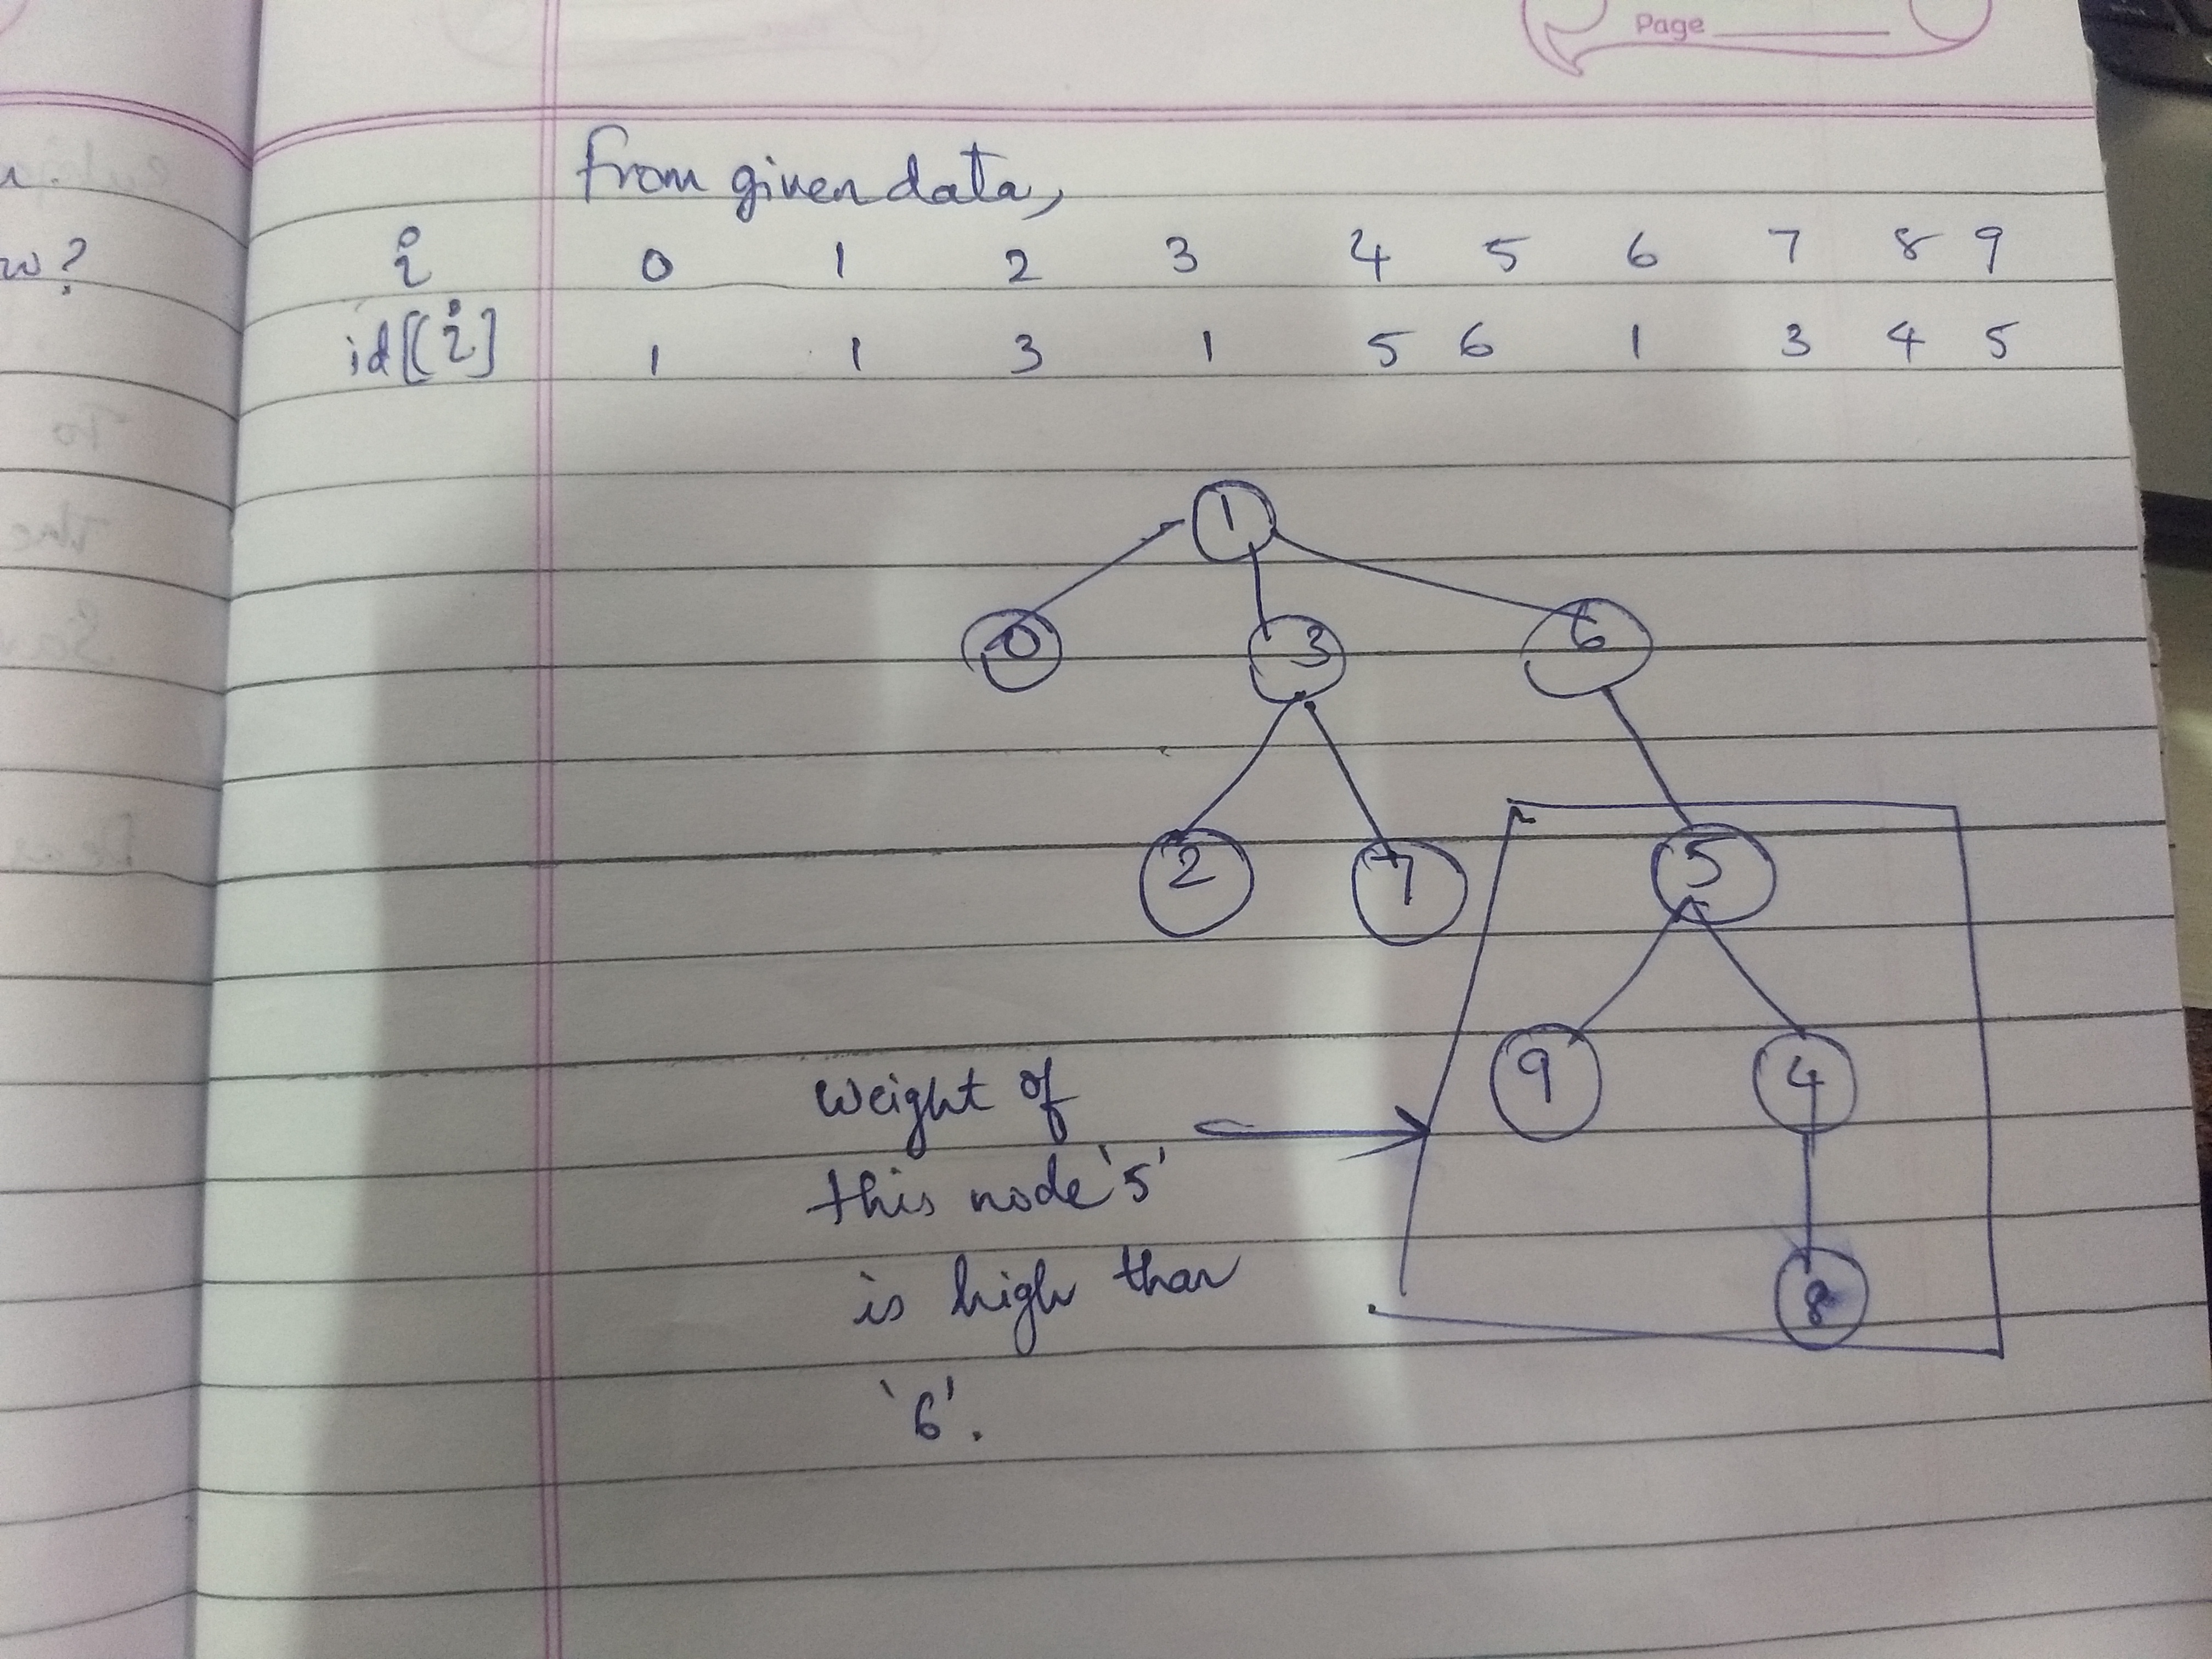 Page
From given data,
w?
i 0 1 2 3 4 5 6 7 8 9
id[(i] 1 1 3 1 5 6 1 3 4 5
1
0 3 6
2 7 5
9 4
8
Weight of
this node '5'
is high than
'6'.